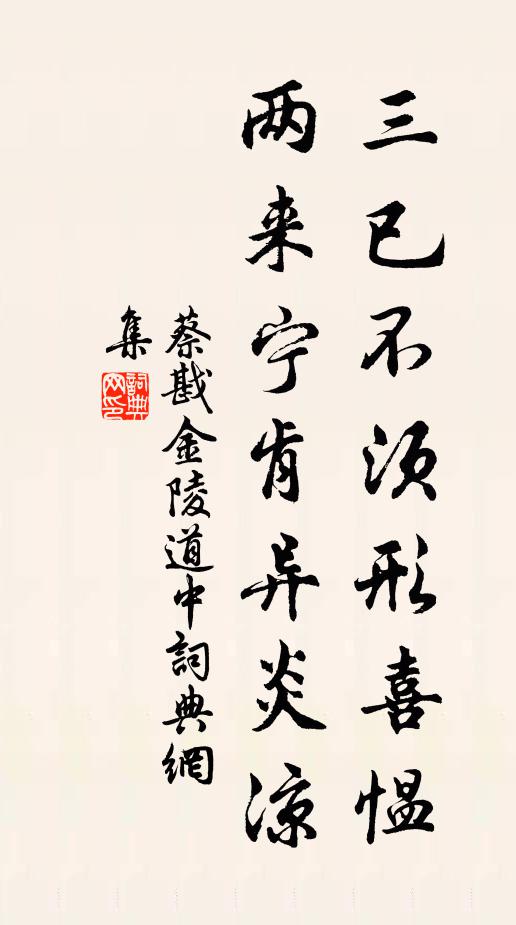 三已不须形喜愠
两来宁肯异炎凉
蔡戡金陵道中詞典網
集
詞典
网印